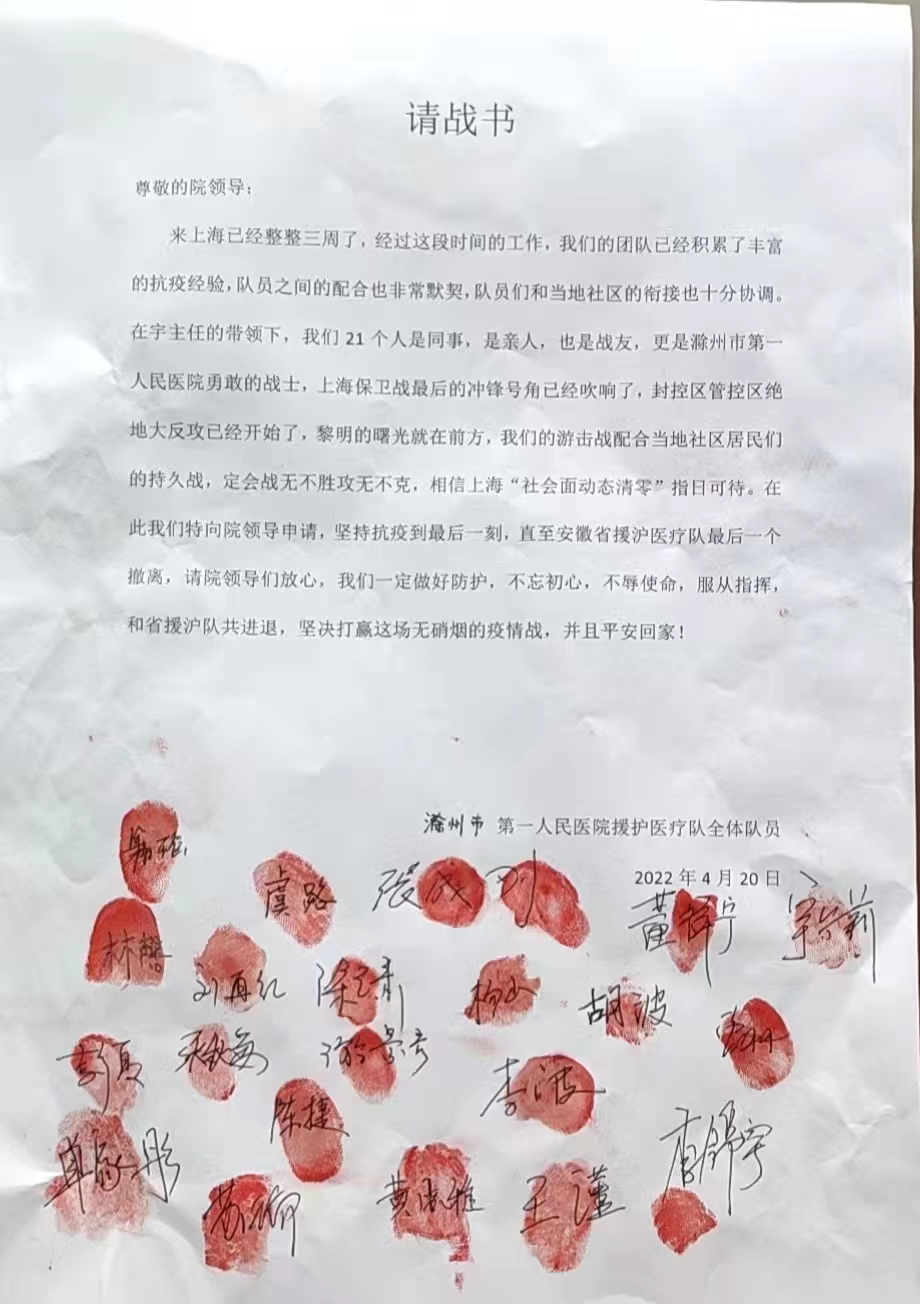 请战书
尊敬的院领导：
来上海已经整整三周了，经过这段时间的工作，我们的团队已经积累了丰富
的抗疫经验，队员之间的配合也非常默契，队员们和当地社区的衔接也十分协调。
在宇主任的带领下，我们 21 个人是同事，是亲人，也是战友，更是滁州市第一
人民医院勇敢的战士，上海保卫战最后的冲锋号角已经吹响了，封控区管控区绝
地大反攻已经开始了，黎明的曙光就在前方，我们的游击战配合当地社区居民们
的持久战，定会战无不胜攻无不克，相信上海“社会面动态清零”指日可待。在
此我们特向院领导申请，坚持抗疫到最后一刻，直至安徽省援沪医疗队最后一个
撤离，请院领导们放心，我们一定做好防护，不忘初心，不辱使命，服从指挥，
和省援沪队共进退，坚决打赢这场无硝烟的疫情战，并且平安回家！
滁州市 第一人民医院援护医疗队全体队员
2022 年 4 月 20 日
虞路
林馨
刘再红
杨山
胡波
彭夏
李波
陈捷
王瑾